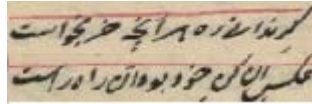 گر ندانی ره هر آنچه خر بخواست
عکس آن کن خود بود آن راه راست